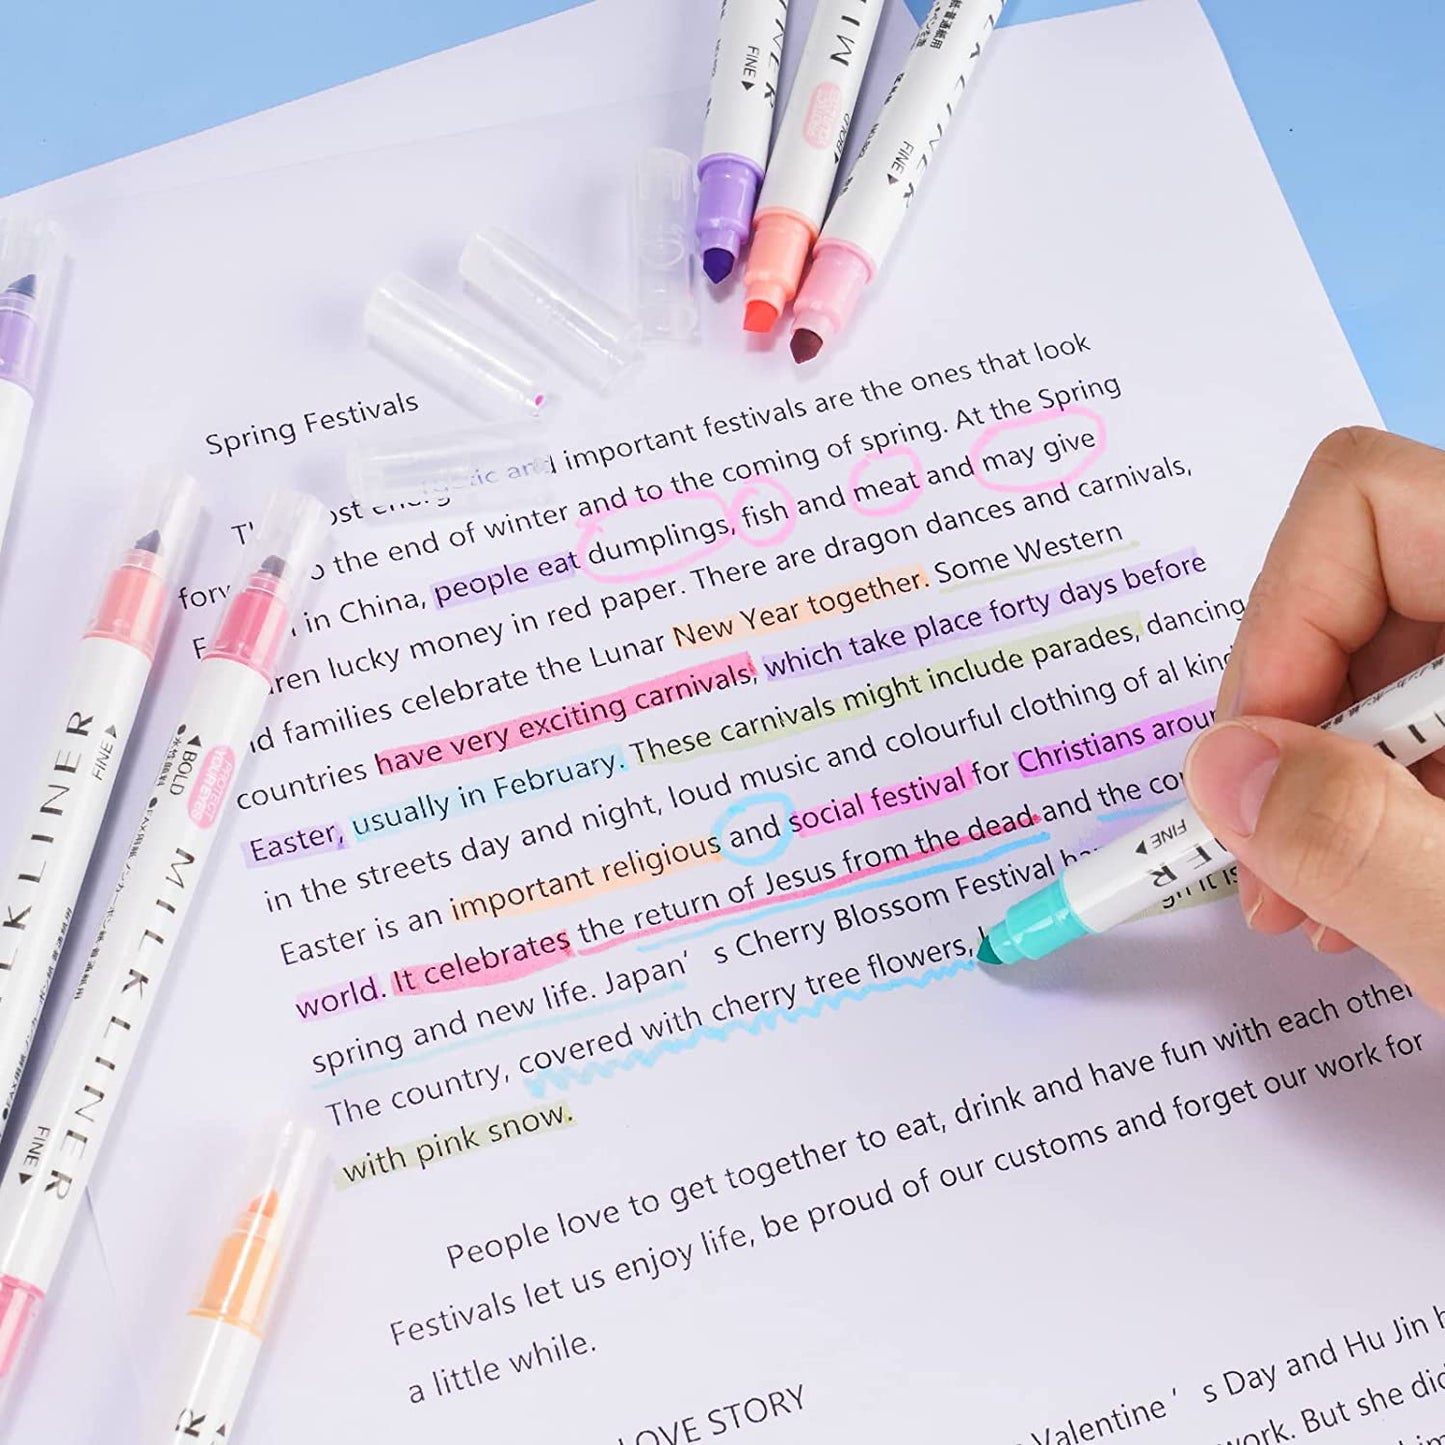 Spring Festivals
important festivals are the ones that look
the end of winter and to the coming of spring. At the Spring
in China, people eat dumplings, fish and meat and may give
lucky money in red paper. There are dragon dances and carnivals,
families celebrate the Lunar New Year together. Some Western
countries have very exciting carnivals, which take place forty days before
Easter, usually in February. These carnivals might include parades, dancing
in the streets day and night, loud music and colourful clothing of al
Easter is an important religious and social festival for Christians
world. It celebrates the return of Jesus from the dead and the
spring and new life. Japan's Cherry Blossom Festival
The country, covered with cherry tree flowers,
it is
with pink snow.
People love to get together to eat, drink and have fun with each other
Festivals let us enjoy life, be proud of our customs and forget our work for
a little while.
LOVE STORY
Valentine's Day and Hu Jin
work. But she did
FINE
BOLD
FINE
FINE
MILKLINER
BOLD
PROTECT
YOUR EYES
MILKLINER
FINE
FINE